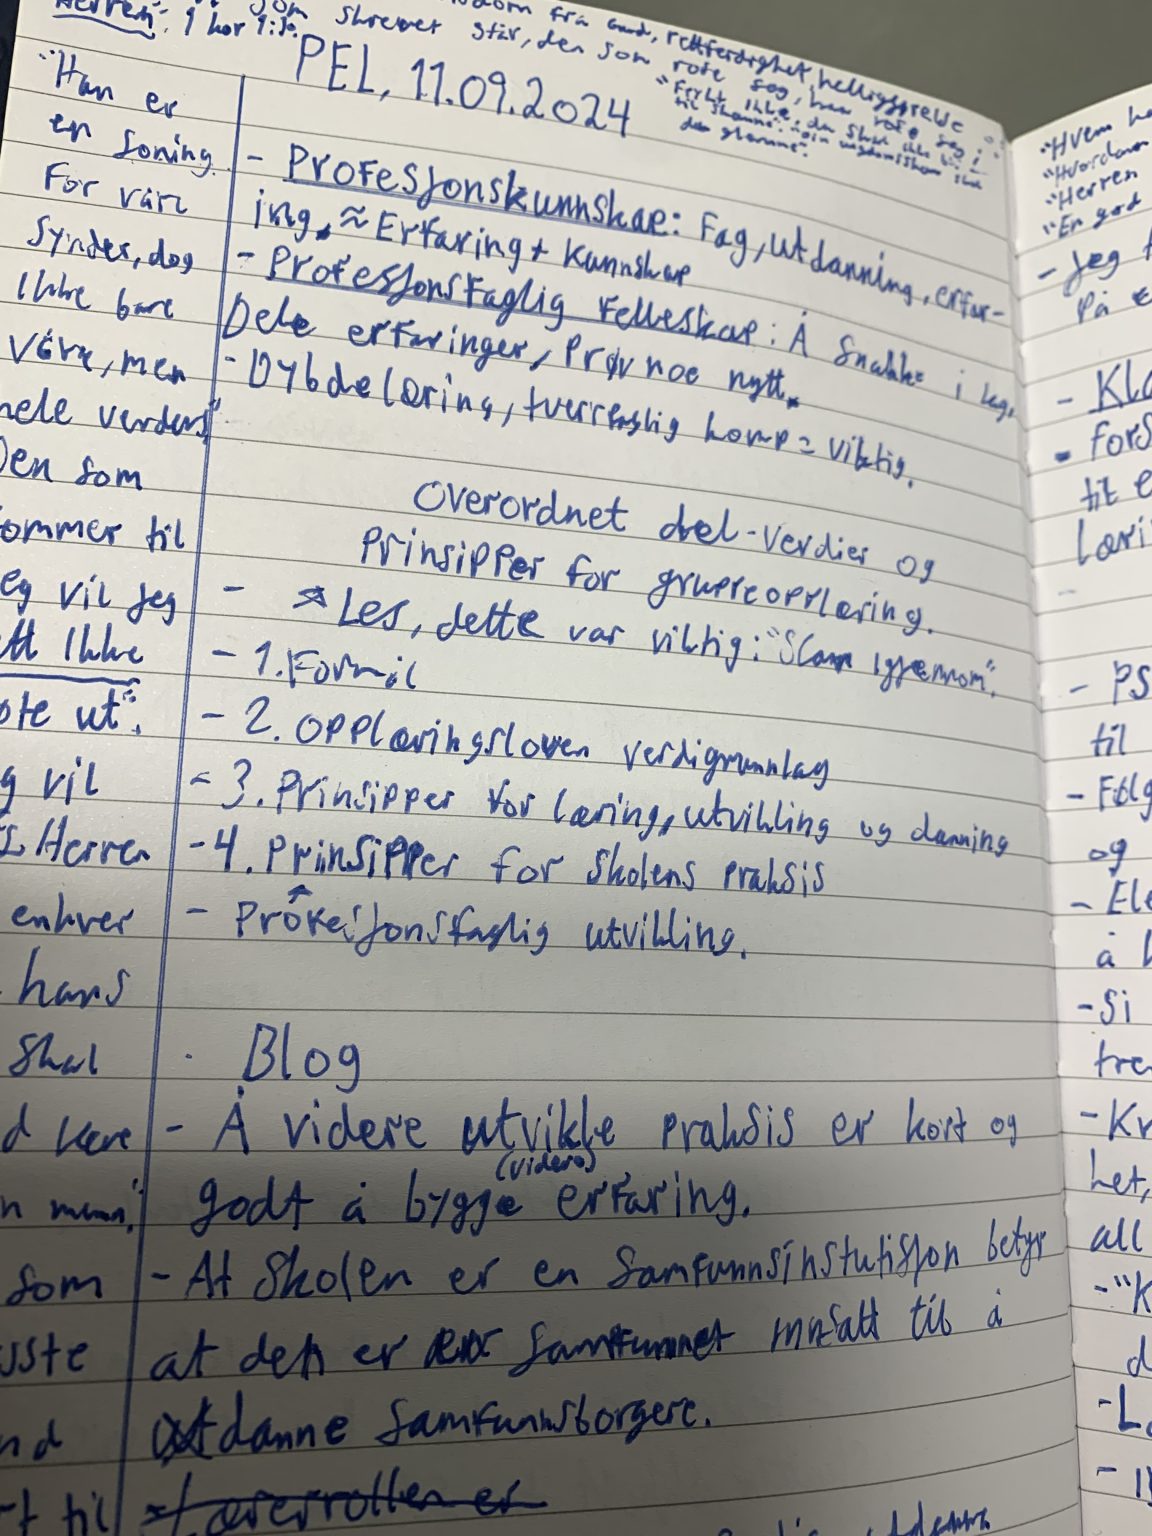 som skrevet står, den som rose seg, han rose seg i
Herren". 1 kor 1:30.
"Frykt ikke, du skal ikke bli
til skamme"
du glemme".
PEL, 11.09.2024
- Profesjonskunnskap: Fag, utdanning, erfar-
ing. ≈ Erfaring + kunnskap
- Profesjonsfaglig Felleskap: Å snakke i lag,
Dele erfaringer, Prøv noe nytt.
- Dybdelæring, tverrfaglig komp = viktig.
Overordnet del - Verdier og
Prinsipper for
- Les, dette var viktig: "Scan igjennom".
- 1. Formål
- 2. Opplæringsloven verdigrunnlag
- 3. Prinsipper for læring, utvikling og danning
- 4. Prinsipper for skolens praksis
- Profesjonsfaglig utvikling.
Blog
- Å videre utvikle praksis er kort og
(videre)
godt å bygge erfaring.
- At skolen er en samfunnsinstutisjon betyr
at den er samfunnet innsatt til å
utdanne samfunnsborgere.
- Lærerrollen er
"Han er
en soning
For våre
Synder, dog
Ikke bare
våre, men
hele verdens"
Den som
kommer til
eg vil jeg
tt Ikke
ote ut".
g vil
Herren
enhver
hans
Skal
d være
n mann."
som
sste
nd
t til
"Hvem ha
"Hvordan
"Herren
"En god
- Jeg
På
- Kla
- Fors
til e
læri
- PS
til
- Følg
og
- Ele
å
- Si
tre
- Kr
het,
all
- "K
d
- L